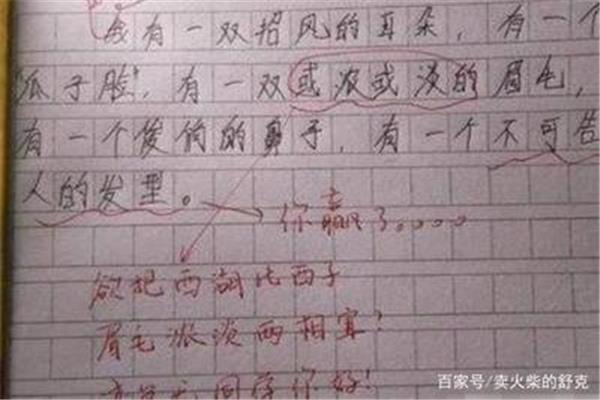 我有一双招风的耳朵，有一个
瓜子脸，有一双或浓或淡的眉毛，
有一个俊俏的鼻子，有一个不可告
人的发型。
你赢了。。。。
欲把西湖比西子
眉毛浓淡两相宜！
同学你好！
百家号/卖火柴的舒克